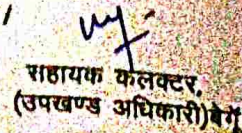 सहायक कलक्टर,
(उपखण्ड अधिकारी) बेगूं